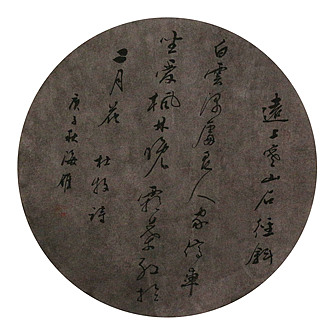 遠上寒山石徑斜
白雲深處有人家停車
坐愛楓林晚霜葉紅於
二月花 杜牧詩
庚子秋海雁